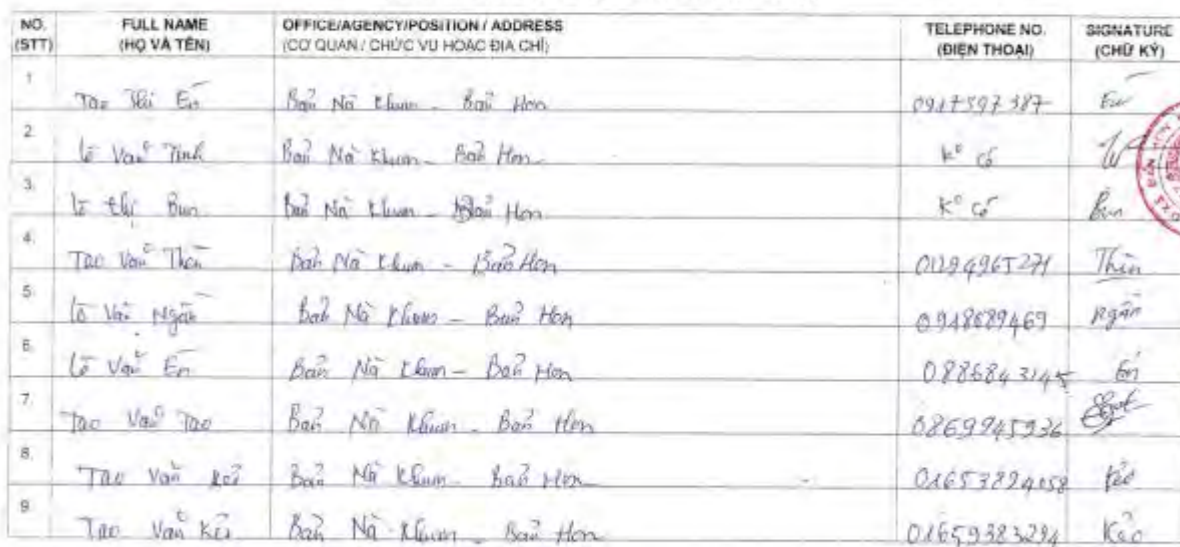 NO. FULL NAME OFFICE/AGENCY/POSITION / ADDRESS TELEPHONE NO. SIGNATURE
(STT) (HỌ VÀ TÊN) (CƠ QUAN / CHỨC VỤ HOẶC ĐỊA CHỈ) (ĐIỆN THOẠI) (CHỮ KÝ)
1 Tao Thị Én Bản Nà Khum - Bản Hon 0917597387 Én
2. Lò Văn Tinh Bản Nà Khum - Bản Hon Ko có
3. Lò Thị Bun Bản Nà Khum - Bản Hon Ko có Bun
4. Tao Văn Bản Nà Khum - Bản Hon 01294965271 Thìn
5. Lò Văn Ngân Bản Nà Khum - Bản Hon 0948689469 Ngân
6. Lò Văn Én Bản Nà Khum - Bản Hon 0886843145 Én
7. Tao Văn Tao Bản Nà Khum - Bản Hon 0869945936
8. Tao Văn Bản Nà Khum - Bản Hon 01653894058
9 Tao Văn Bản Nà Khum - Bản Hon 01659383294 Kẻo